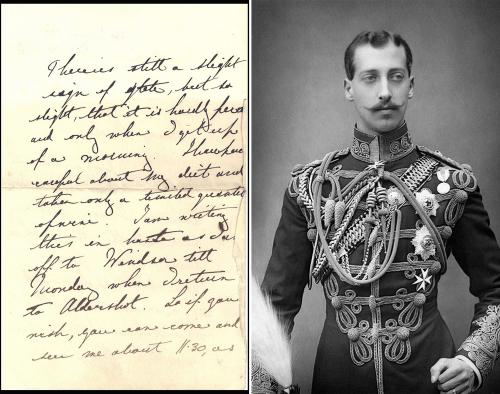 There is still a slight
sign of glete, but so
slight, that it is hardly
and only when I get up
of a morning. I have
careful about my diet and
taken only a limited
of wine. I am writing
this in haste as I am
off to Windsor till
Monday when I return
to Aldershot. So if you
wish, you can come and
see me about 11.30, as